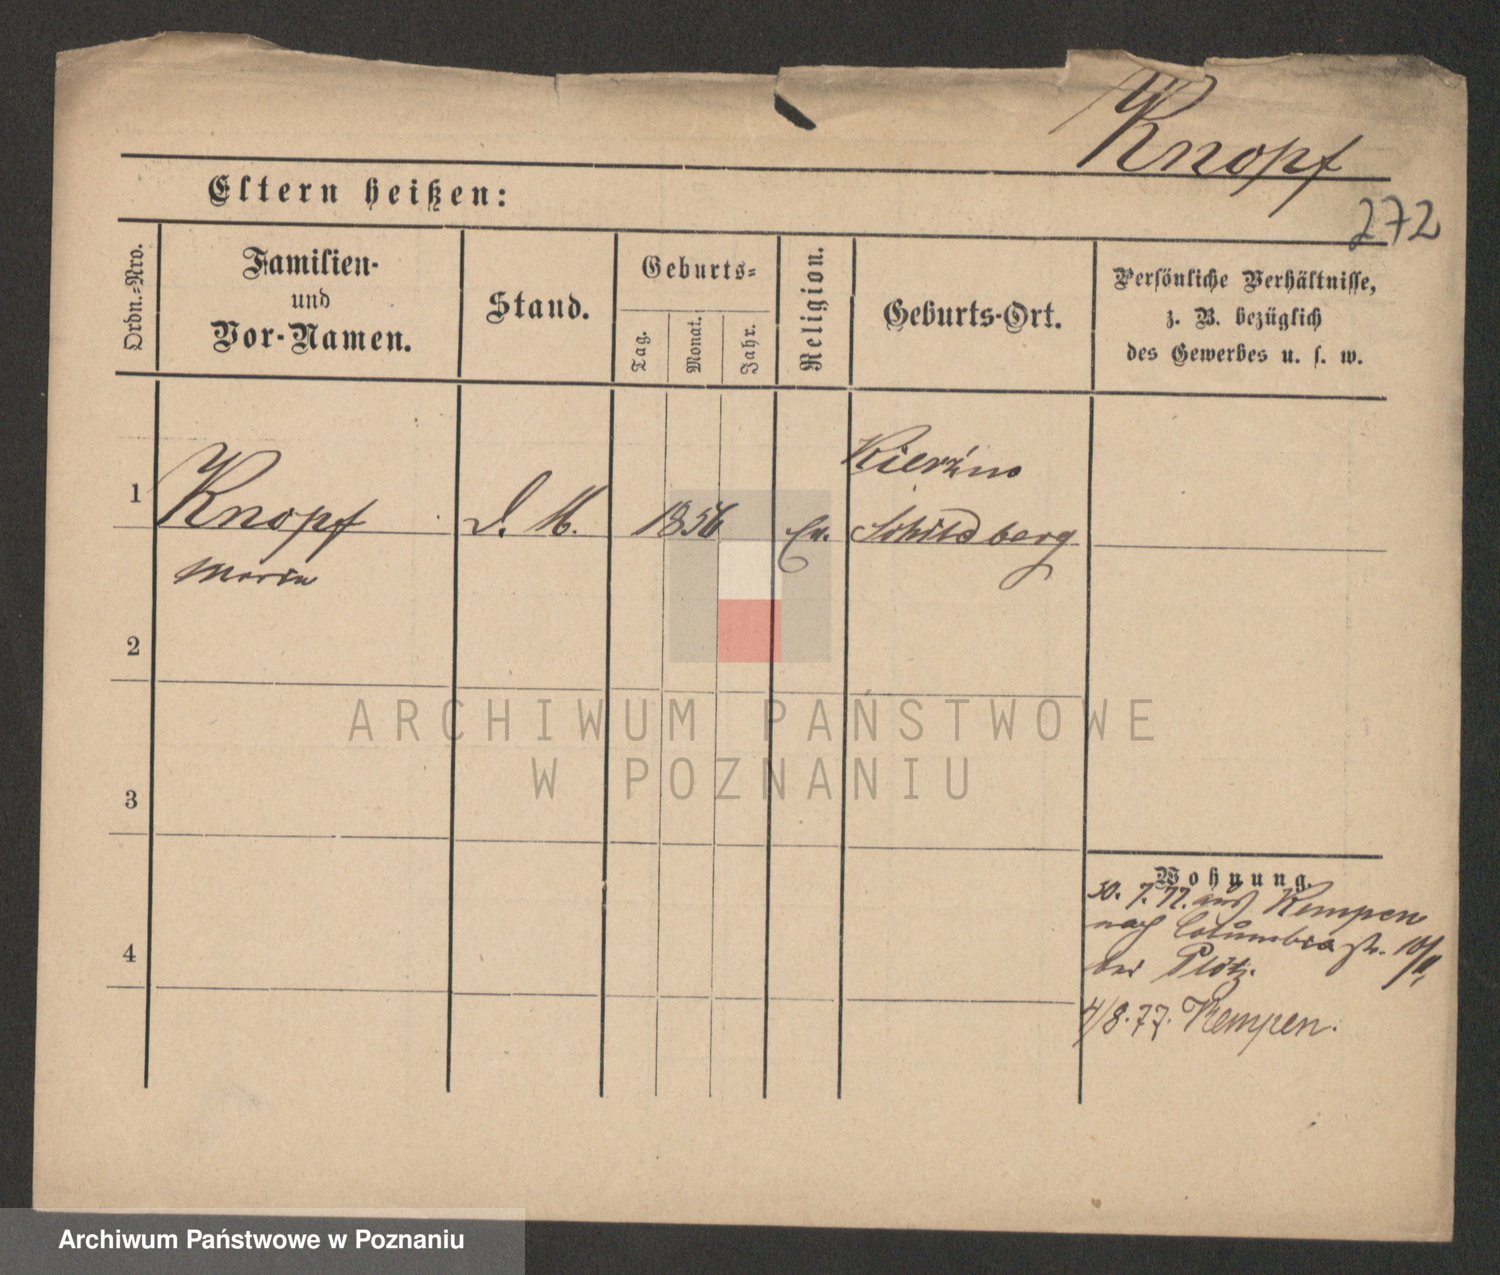 Knopf
272
Eltern heißen:
Ordn.-Nro.
Familien-
und
Vor-Namen.
Stand.
Geburts-
Tag.
Monat.
Jahr.
Religion.
Geburts-Ort.
Persönliche Verhältnisse,
z. B. bezüglich
des Gewerbes u. s. w.
1
Knopf
Maria
D. M.
1856
Ev.
Schildberg
2
3
4
Wohnung.
30. 7. 77. aus Kempen
nach Columbia str.
bei Plötz.
4/8.77. Kempen.
ARCHIWUM PAŃSTWOWE
W POZNANIU
Archiwum Państwowe w Poznaniu